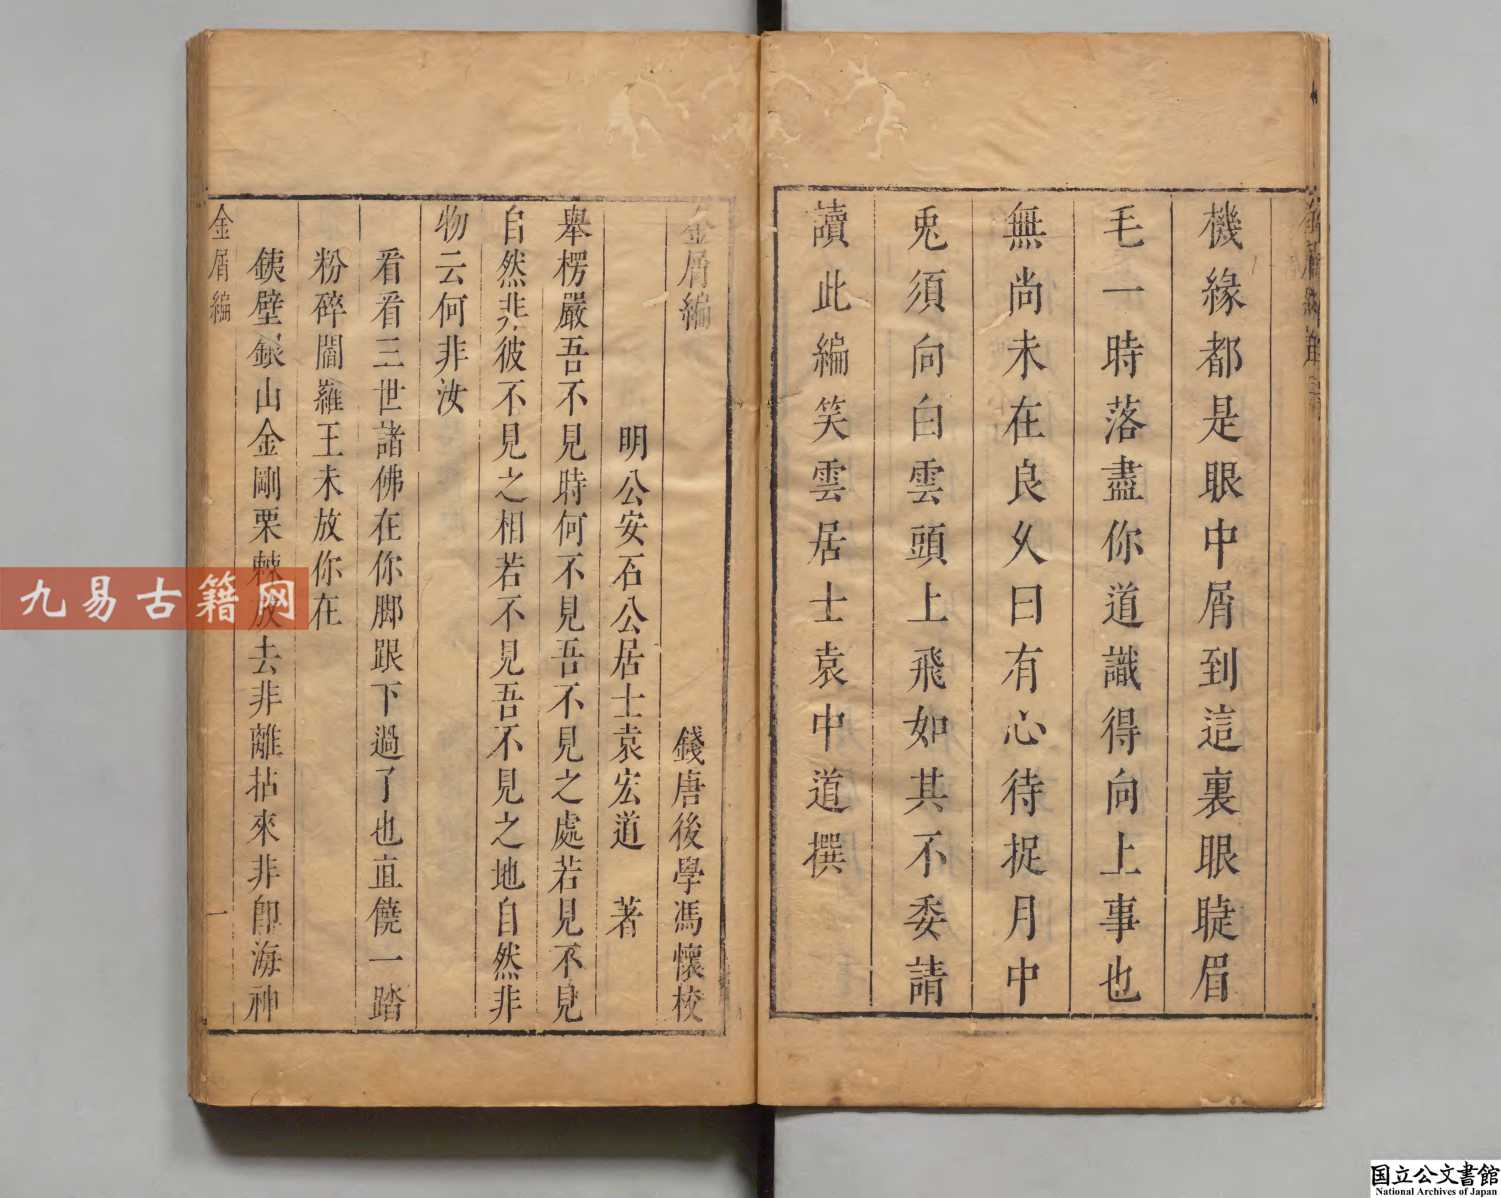 機緣都是眼中屑到這裏眼睫眉
毛一時落盡你道識得向上事也
無尚未在良久曰有心待捉月中
兎須向白雲頭上飛如其不委請
讀此編笑雲居士袁中道撰
金屑編
錢唐後學馮懷校
明公安石公居士袁宏道 著
舉楞嚴吾不見時何不見吾不見之處若見不見
自然非彼不見之相若不見吾不見之地自然非
物云何非汝
看看三世諸佛在你脚跟下過了也直饒一踏
粉碎閻羅王未放你在
鉄壁銀山金剛栗棘放去非離拈來非即海神
金屑編
一
九易古籍网
国立公文書館
National Archives of Japan